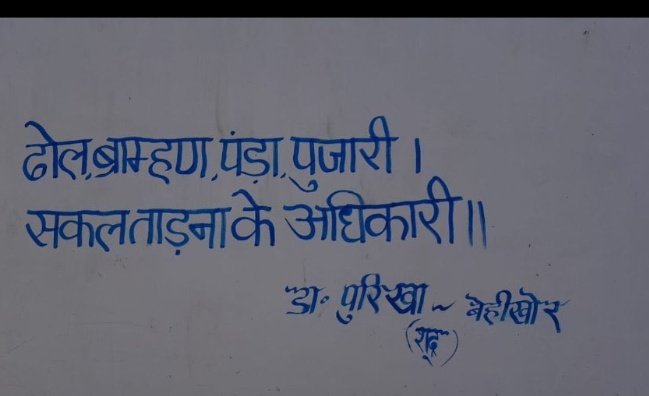 ढोल,ब्राम्हण,पंडा,पुजारी ।
सकल ताड़ना के अधिकारी ॥
डा॰ पुरिखा ~ बेहीखोर
(शूद्र)